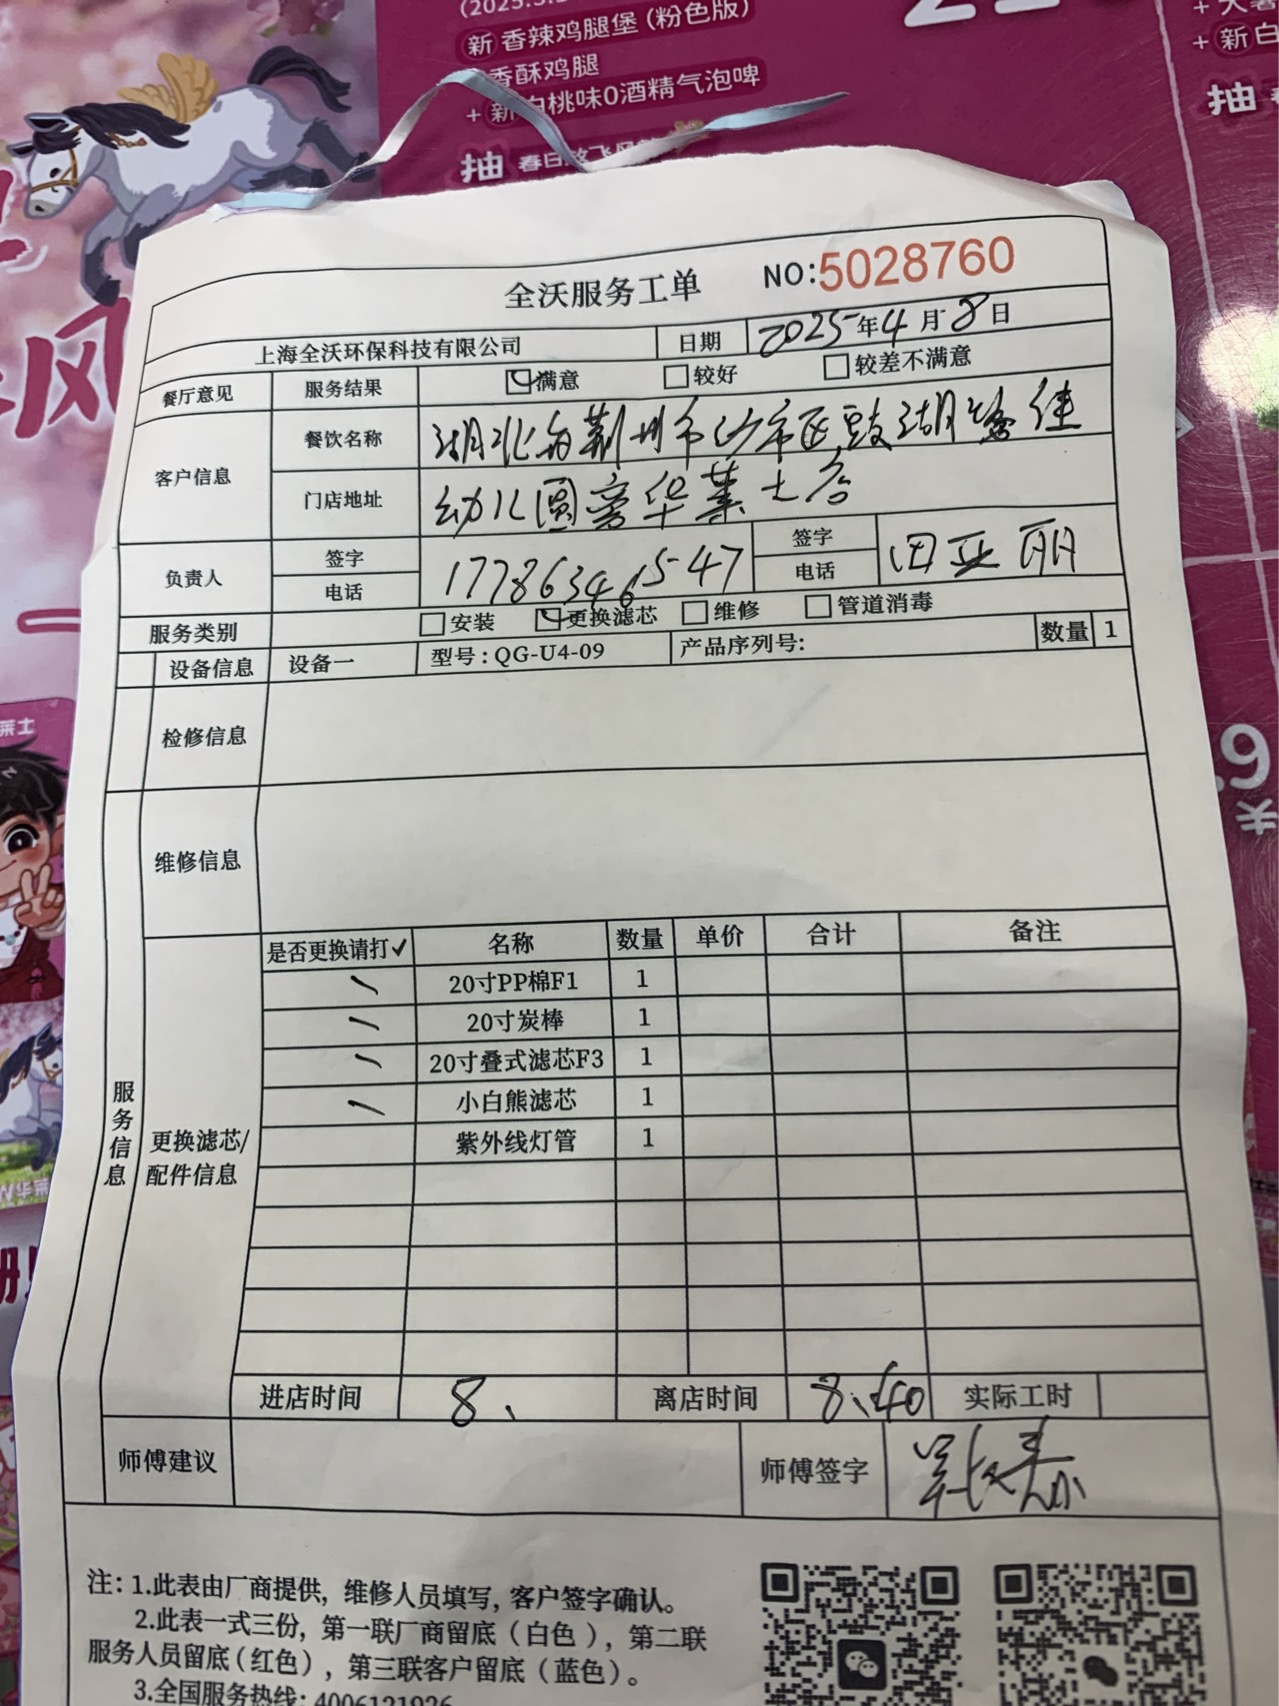 新 香辣鸡腿堡(粉色版)
香酥鸡腿
+ 新白桃味0酒精气泡啤
+ 新白
抽 春日放飞风
抽
风
全沃服务工单 NO:5028760
上海全沃环保科技有限公司 日期 2025年4月8日
餐厅意见 服务结果 满意 较好 较差不满意
客户信息 餐饮名称 湖北省荆州市沙市区豉湖路佳
门店地址 幼儿园旁华莱士店
负责人 签字 电话 17786346547 签字 电话 田亚丽
服务类别 安装 更换滤芯 维修 管道消毒
设备信息 设备一 型号:QG-U4-09 产品序列号: 数量 1
检修信息
莱士
9
¥
维修信息
服务信息
更换滤芯/配件信息
是否更换请打✓ 名称 数量 单价 合计 备注
20寸PP棉F1 1
20寸炭棒 1
20寸叠式滤芯F3 1
小白熊滤芯 1
紫外线灯管 1
进店时间 8、 离店时间 8、40 实际工时
师傅建议 师傅签字
注:1.此表由厂商提供,维修人员填写,客户签字确认。
2.此表一式三份,第一联厂商留底(白色),第二联
服务人员留底(红色),第三联客户留底(蓝色)。
3.全国服务热线:4006121926